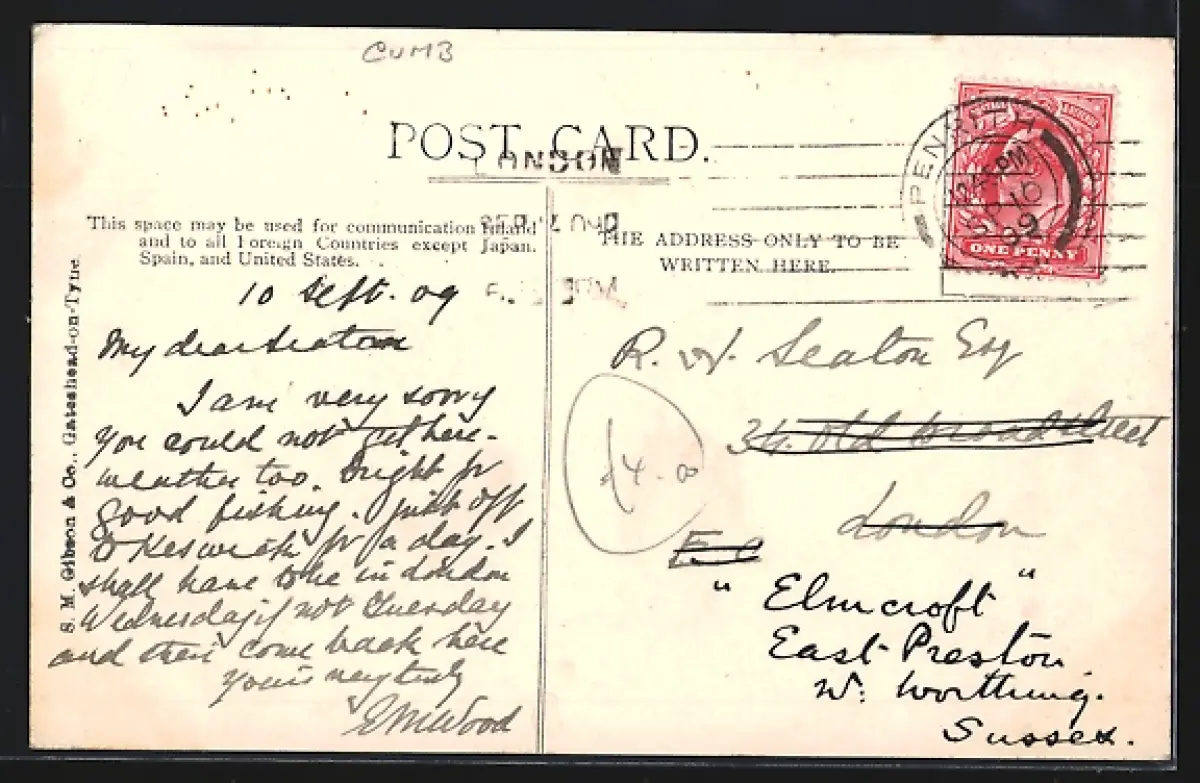 CUMB
POST CARD.
LONDON
PENRITH
12.45 PM
SP 10
09
ONE PENNY
This space may be used for communication Inland
and to all Foreign Countries except Japan.
Spain, and United States.
THE ADDRESS ONLY TO BE
WRITTEN HERE.
S. M. Gibson & Co., Gateshead-on-Tyne.
10 Sept. 09
My dear Seaton
I am very sorry
you could not get here -
weather too bright for
good fishing. Just off
to Keswick for a day. I
shall have to be in London
Wednesday if not Tuesday
and then come back here
Yours very truly
E M Wood
R. W. Seaton Esq
34. Old Broad Street
London
E.C
£4.00
"Elmcroft"
East Preston
Nr: Worthing.
Sussex.